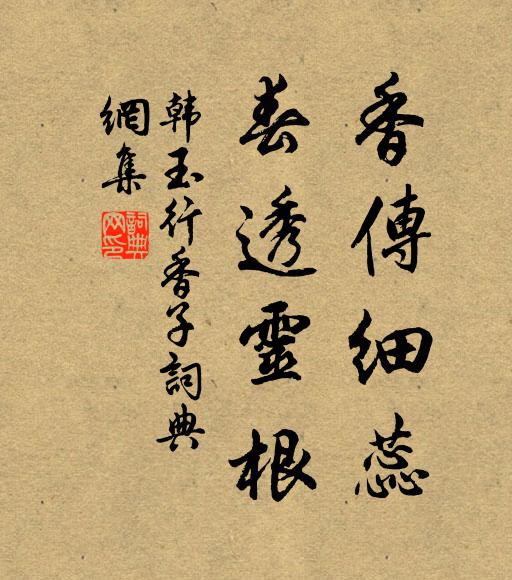 香傳細蕊
春透靈根
韩玉行香子詞典
網集
詞典
网印